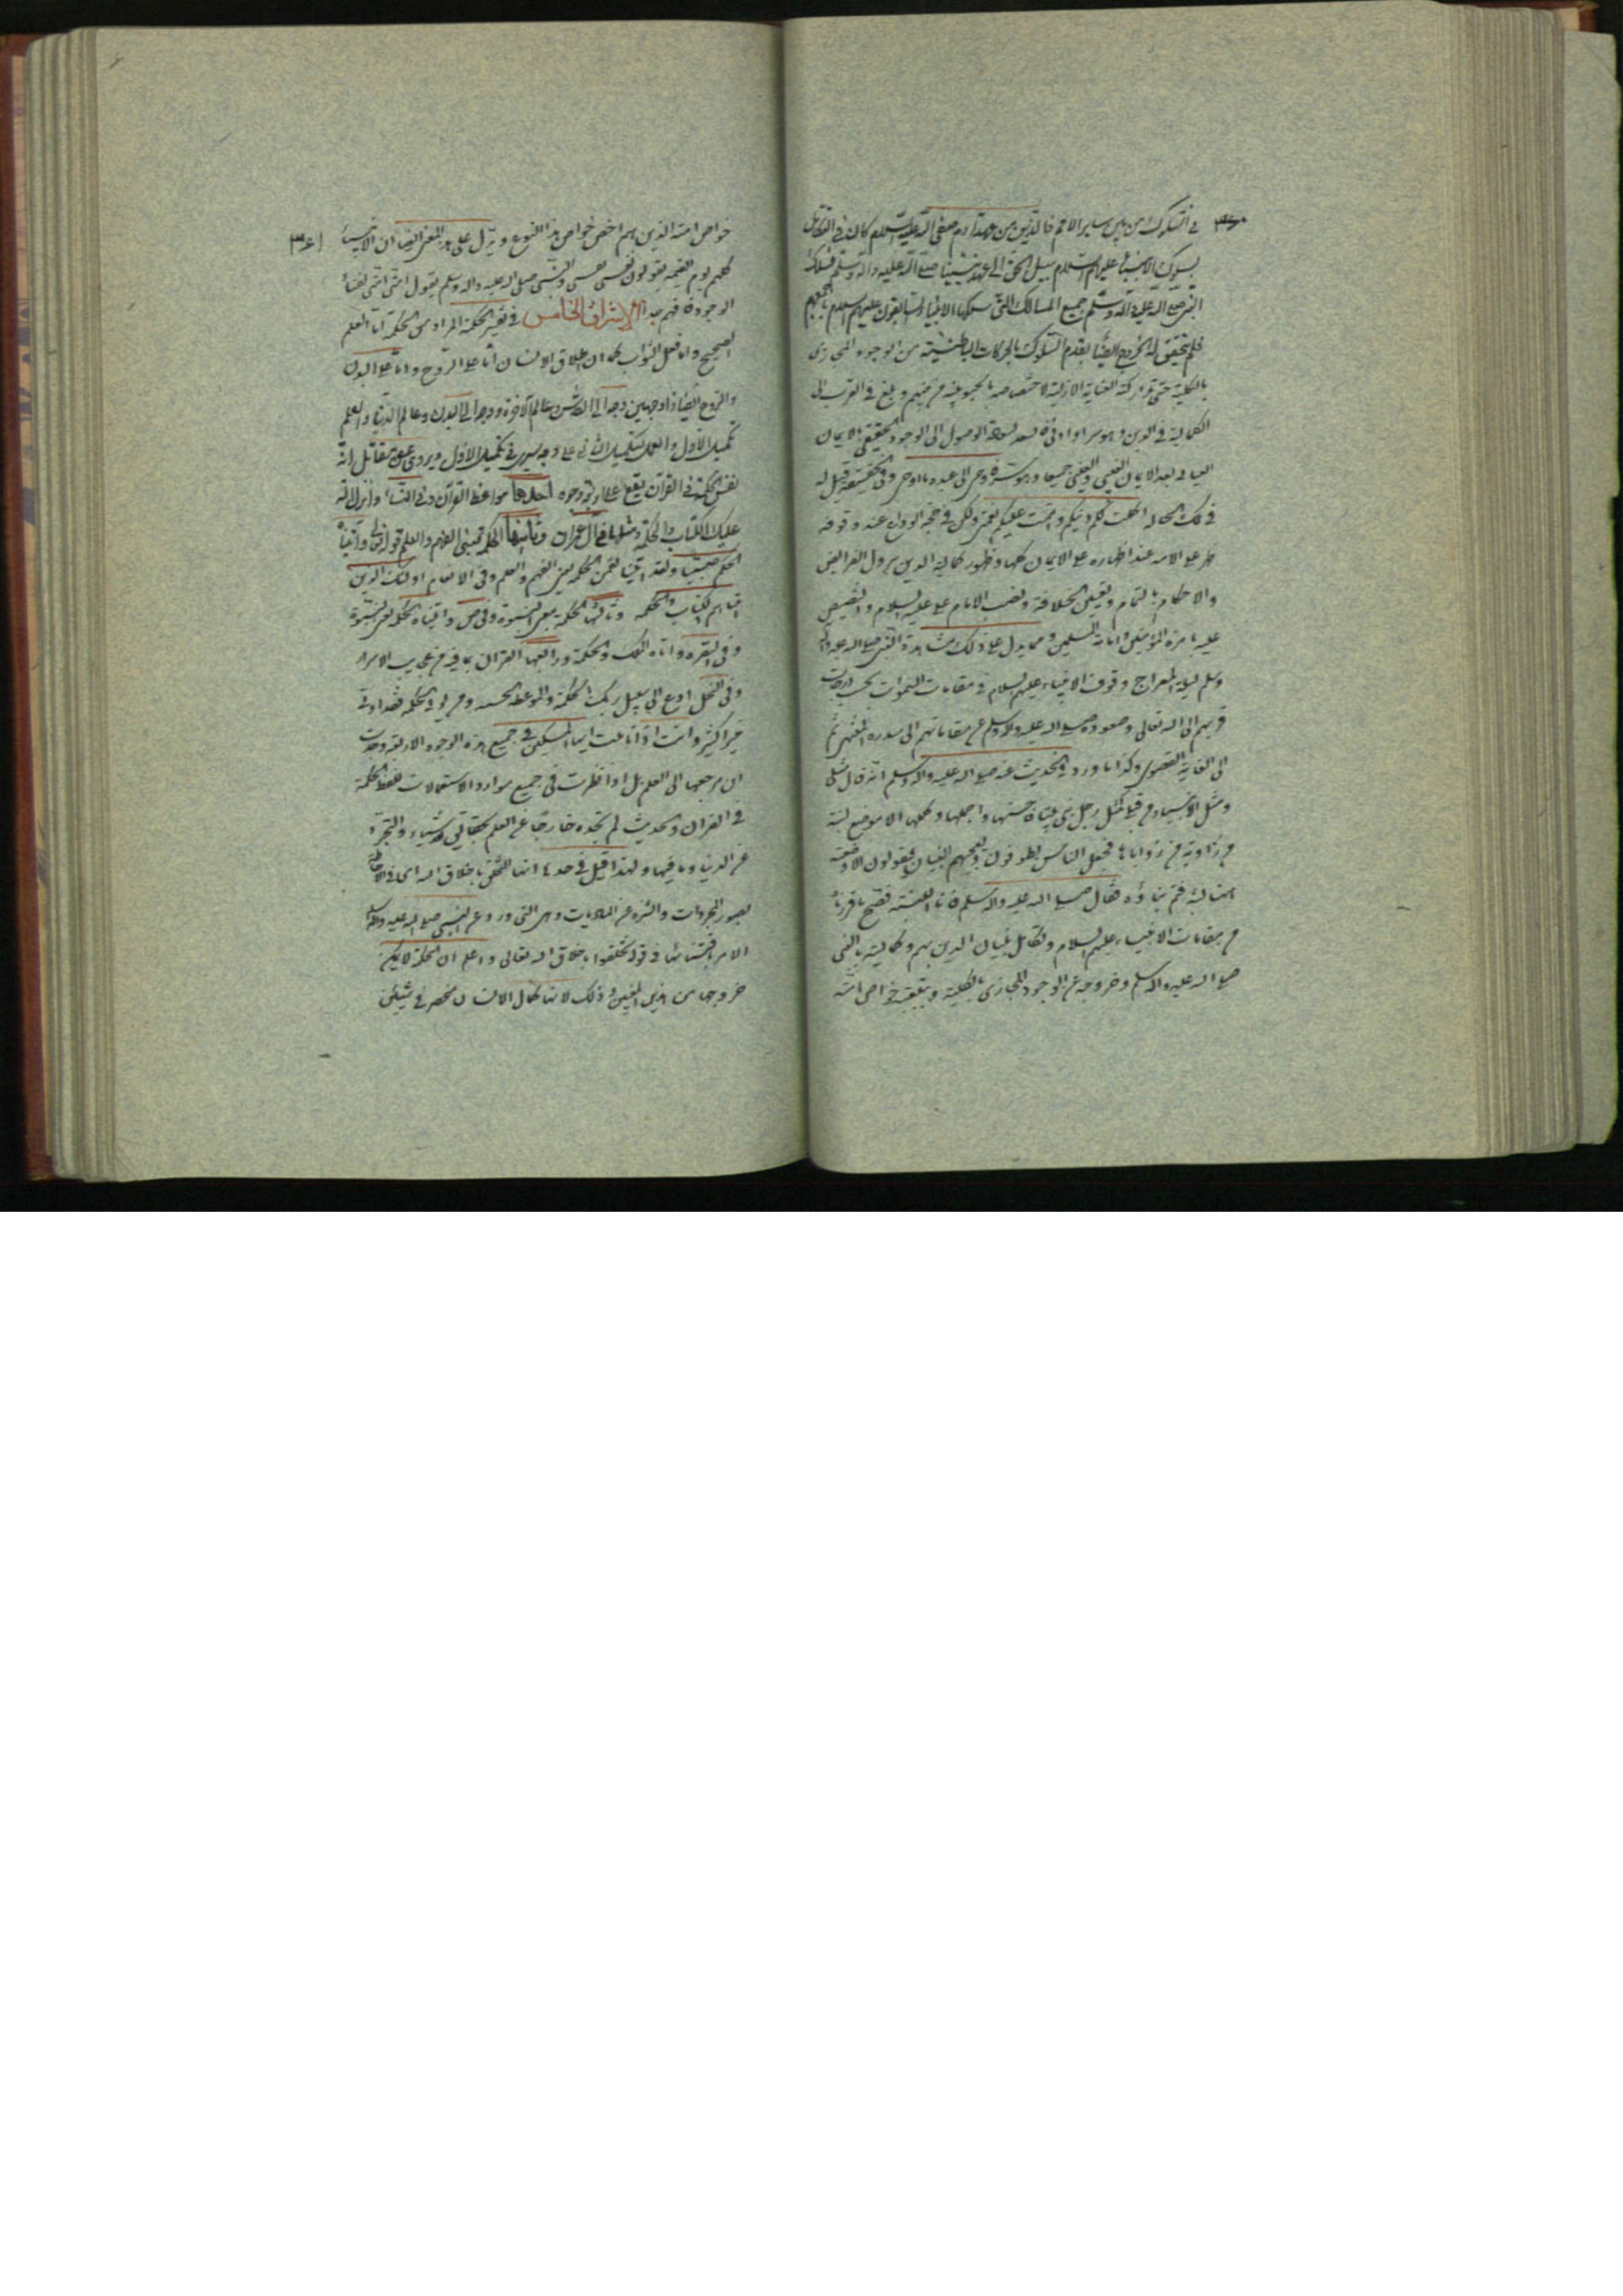 ٣٦٠
في السلوك من بين سائر الامم فالدين من عهد آدم صفي الله عليه السلام كان في التكامل
بسلوك الانبياء عليهم السلام سبيل الحق الى عهد نبينا صلى الله عليه وآله وسلم فسلك
النبي صلى الله عليه وآله وسلم جميع المسالك التي سلكها الانبياء السابقون عليهم السلام باجمعهم
فلم يتحقق له الخروج ايضا بقدم السلوك بالحركات الباطنية من الوجود المجازي
بالكلية حتى تداركته العناية الازلية لاختصاصه بالمحبوبية من بينهم وبلغ في القرب الى
الكمالية في الدين وهو سر او ادنى فاستعد لسعادة الوصول الى الوجود الحقيقي الايمان
العياني بعد الايمان الغيبي والعيني جميعا وهو سر فاوحى الى عبده ما اوحى وفي الحقيقة قيل له
في تلك الحالة اكملت لكم دينكم واتممت عليكم نعمتي ولكن في حجة الوداع عند وقوفه
على الامة عند اظهاره على الايمان كلها وظهور كمالية الدين بنزول الفرائض
والاحكام بالتمام وتعيين الخلافة ونصب الامام علي عليه السلام والتنصيص
عليه بامرة المؤمنين وامامة المسلمين ومما يدل على ذلك مشاهدة النبي صلى الله عليه وآله
وسلم ليلة المعراج وقوف الانبياء عليهم السلام في مقامات السموات بحسب درجات
قربهم الى الله تعالى وصعوده صلى الله عليه وآله وسلم عن مقاماتهم الى سدرة المنتهى ثم
الى الغاية القصوى وكذا ما ورد في الحديث عنه صلى الله عليه وآله وسلم انه قال مثلي
ومثل الانبياء من قبلي كمثل رجل بنى بنيانا حسنها واجملها وكملها الا موضع لبنة
من زاوية من زواياها فجعل الناس يطوفون ويعجبهم البنيان فيقولون الا وضعت
ههنا لبنة فتم بناؤه فقال صلى الله عليه وآله وسلم فانا اللبنة فصح ما قررناه
من مقامات الانبياء عليهم السلام وتكامل بنيان الدين بهم وكماليته بالنبي
صلى الله عليه وآله وسلم وخروجه عن الوجود المجازي بالكلية وبتبعيته خواص امته
٣٦١
خواص امته الذين هم اخص الخواص هذا النوع ويدل على هذا المعنى ايضا ان الانبياء
كلهم يوم القيمة يقولون نفسي نفسي والنبي صلى الله عليه وآله وسلم يقول امتي امتي لفناء
الوجود فافهم جدا الاشراق الخامس في تفسير الحكمة المراد من الحكمة اما العلم
الصحيح واما فعل الصواب كما ان اطلاق الانسان اما على الروح واما على البدن
والروح ايضا ذا وجهين وجه الى القدس وعالم الآخرة ووجه الى البدن وعالم الدنيا والعلم
تكميل الاول والعمل تكميل الثاني على وجه يسري في تكميل الاول ويروى عن مقاتل انه
تفسير الحكمة في القرآن يقع على اربعة وجوه احدها مواعظ القرآن وفي النساء وانزل الله
عليك الكتاب والحكمة ومثلها في آل عمران وثانيها الحكمة بمعنى الفهم والعلم قوله تعالى وآتيناه
الحكم صبيا ولقد اتينا لقمن الحكمة يعني الفهم والعلم وفي الانعام اولئك الذين
اتيناهم الكتاب والحكمة وثالثها الحكمة بمعنى النبوة وفي ص واتيناه الحكمة يعني النبوة
وفي البقرة واتاه الملك والحكمة ورابعها القران بما فيه من عجايب الاسرار
وفي النحل ادع الى سبيل ربك بالحكمة والموعظة الحسنة ومن يؤتى الحكمة فقد اوتي
خيرا كثيرا وانت اذا تاملت ايها المسكين في جميع هذه الوجوه الاربعة وجدت
ان مرجعها الى العلم بل اذا نظرت في جميع موارد الاستعمالات للفظ الحكمة
في القران والحديث لم تجده خارجا عن العلم بحقايق الاشياء والتجرد
عن الدنيا وما فيها ولهذا قيل في حدها انها التخلق باخلاق الله اي في الاحاطة
بصور المجردات والتنزه عن الماديات وهي التي ورد عن النبي صلى الله عليه وآله وسلم
الامر باقتنائها في قوله تخلقوا باخلاق الله تعالى واعلم ان الحكمة لا يمكن
خروجها من هذين المعنيين وذلك لانها كمال الانسان منحصر في شيئين